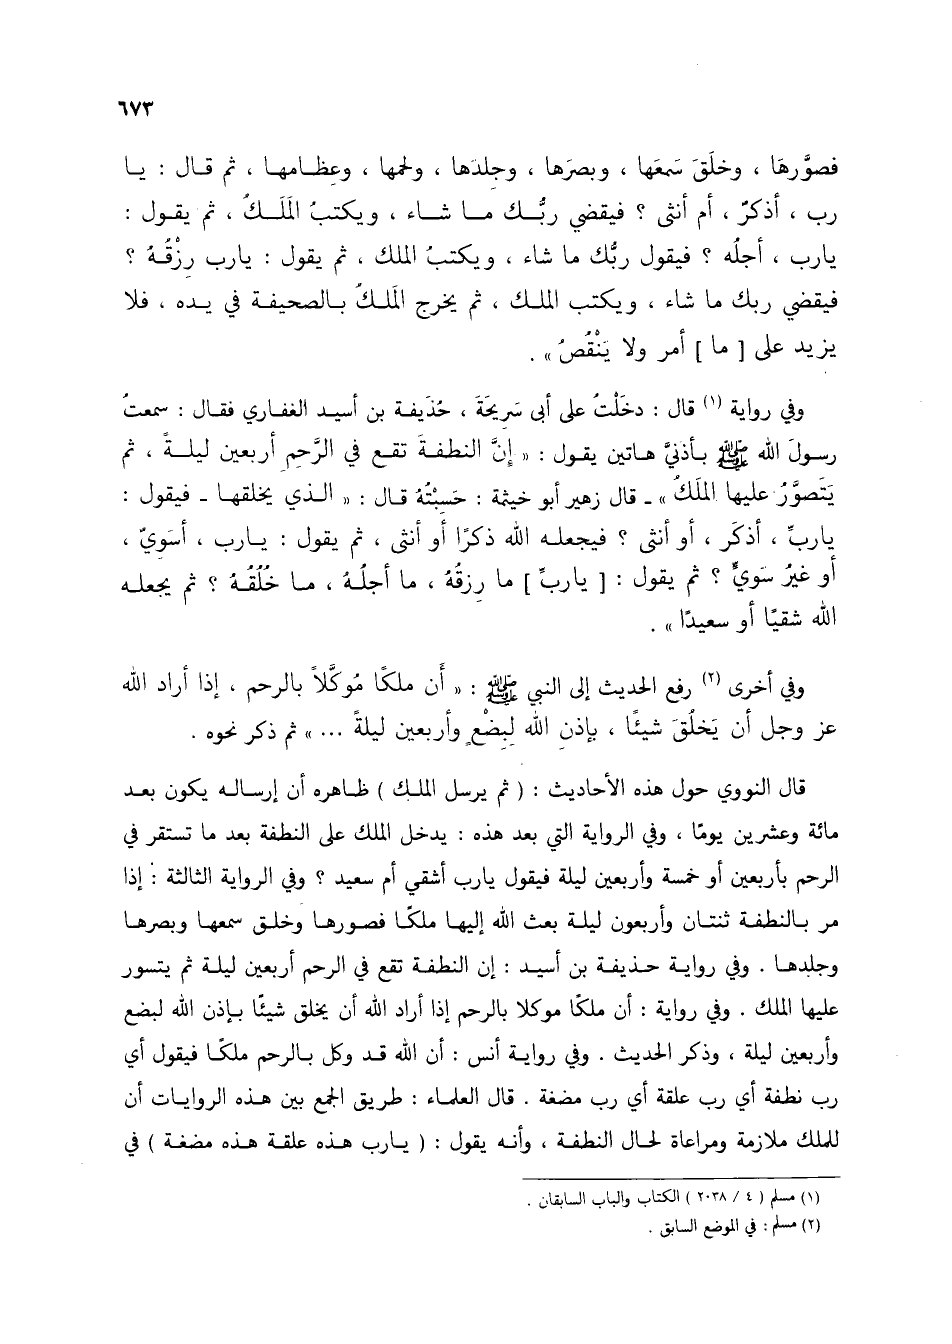 ٦٧٣
فصوَّرهَا ، وخلَقَ سَمعَها ، وبصرَها ، وجلدَها ، ولحمَها ، وعظامها ، ثم قال : يا
رب ، أذكرٌ ، أم أنثى ؟ فيقضي ربُّك ما شاء ، ويكتبُ المَلَكُ ، ثم يقول :
يارب ، أجلُه ؟ فيقول ربُّك ما شاء ، ويكتبُ الملك ، ثم يقول : يارب رزْقُهُ ؟
فيقضي ربك ما شاء ، ويكتب الملك ، ثم يخرج المَلَكُ بالصحيفة في يده ، فلا
يزيد على [ ما ] أمر ولا يَنْقُصُ » .
وفي رواية (١) قال : دخَلْتُ على أبى سَرِيحَةَ ، حُذَيفة بن أسيد الغفاري فقال : سمعتُ
رسولَ الله ﷺ بأذنيَّ هاتين يقول : « إِنَّ النطفةَ تقع في الرَّحِمِ أربعين ليلةً ، ثم
يَتَصوَّرُ عليها المَلَكُ » ـ قال زهير أبو خيثمة : حَسِبْتُهُ قال : « الذي يخلقها ـ فيقول :
ياربِّ ، أذكَر ، أو أنثى ؟ فيجعله الله ذكرًا أو أنثى ، ثم يقول : يارب ، أسَويّ ،
أو غيرُ سَويٍّ ؟ ثم يقول : [ ياربِّ ] ما رزقُهُ ، ما أجلُهُ ، ما خُلُقُهُ ؟ ثم يجعله
الله شقيًا أو سعيدًا » .
وفي أخرى (٢) رفع الحديث إلى النبي ﷺ : « أَن ملكًا مُوكَّلاً بالرحم ، إذا أراد الله
عز وجل أن يَخلُقَ شيئًا ، بإذنِ الله لِبِضْعٍ وأربعين ليلةً ... » ثم ذكر نحوه .
قال النووي حول هذه الأحاديث : ( ثم يرسل الملك ) ظاهره أن إرساله يكون بعد
مائة وعشرين يومًا ، وفي الرواية التي بعد هذه : يدخل الملك على النطفة بعد ما تستقر في
الرحم بأربعين أو خمسة وأربعين ليلة فيقول يارب أشقي أم سعيد ؟ وفي الرواية الثالثة : إذا
مر بالنطفة ثنتان وأربعون ليلة بعث الله إليها ملكًا فصورها وخلق سمعها وبصرها
وجلدها . وفي رواية حذيفة بن أسيد : إن النطفة تقع في الرحم أربعين ليلة ثم يتسور
عليها الملك . وفي رواية : أن ملكًا موكلا بالرحم إذا أراد الله أن يخلق شيئًا بإذن الله لبضع
وأربعين ليلة ، وذكر الحديث . وفي رواية أنس : أن الله قد وكل بالرحم ملكًا فيقول أي
رب نطفة أي رب علقة أي رب مضغة . قال العلماء : طريق الجمع بين هذه الروايات أن
للملك ملازمة ومراعاة لحال النطفة ، وأنه يقول : ( يارب هذه علقة هذه مضغة ) في
(١) مسلم ( ٤ / ٢٠٣٨ ) الكتاب والباب السابقان .
(٢) مسلم : في الموضع السابق .